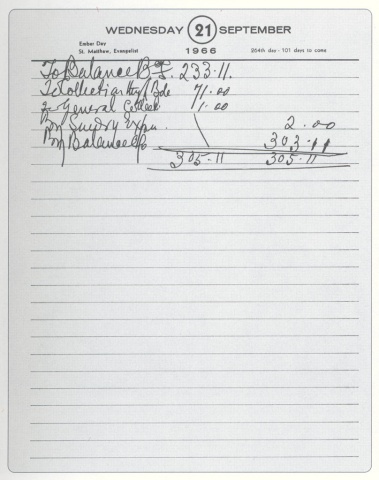 WEDNESDAY 21 SEPTEMBER
Ember Day
St. Matthew, Evangelist
1966
264th day - 101 days to come
To Balance B.F. 233.11.
To Collection 71.00
General 1.00
By Sundry Expn. 2.00
By Balance 303.11
305.11 305.11